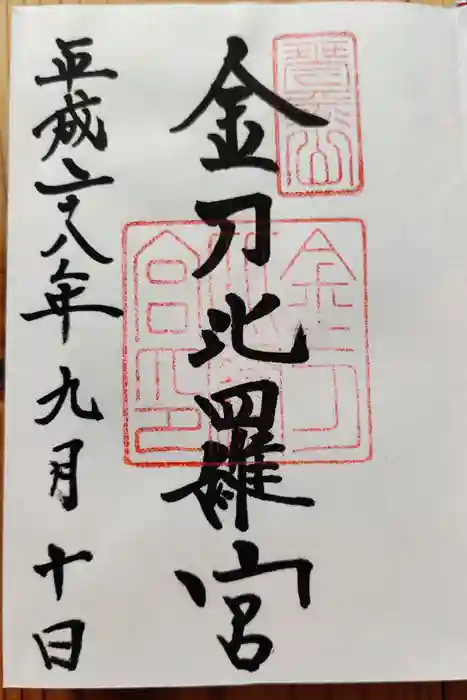 金刀比羅宮
金刀
比羅
宮印
平成二十八年九月十日